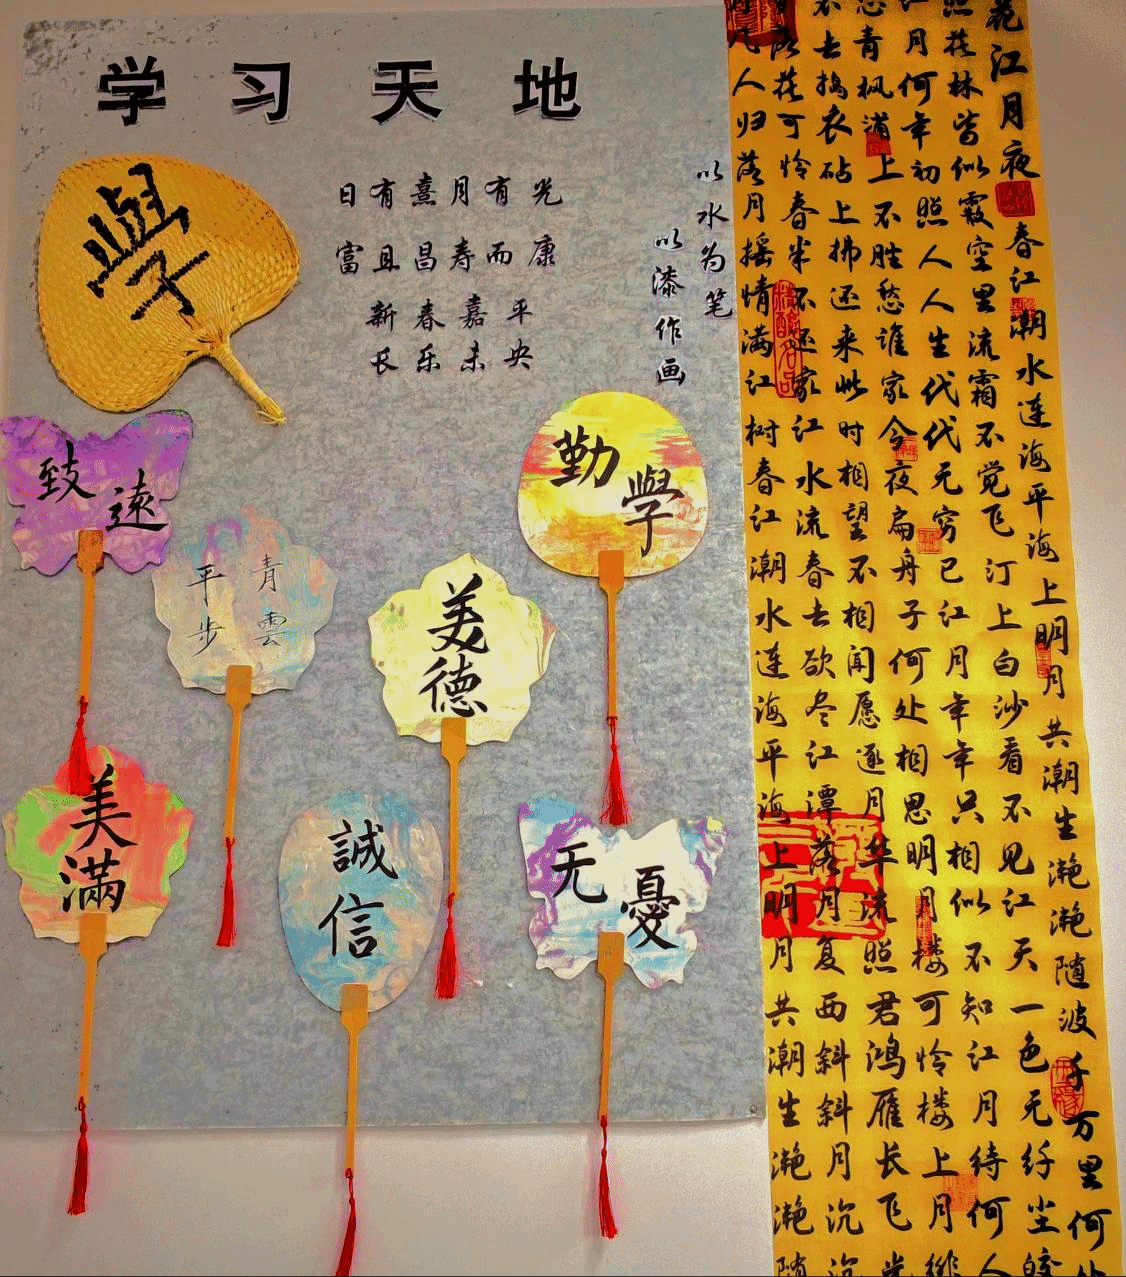 学习天地
學
日有熹月有光
富且昌寿而康
新春嘉平
长乐未央
以水为笔
以漆作画
致遠
勤學
青雲
平步
美德
美满
誠信
无憂
花江月夜
春江潮水连海平海上明月共潮生滟滟随波千万里何
照花林皆似霰空里流霜不觉飞汀上白沙看不见江天一色无纤尘皎
江月何年初照人人生代代无穷已江月年年只相似不知江月待何人
悠青枫浦上不胜愁谁家今夜扁舟子何处相思明月楼可怜楼上月徘
不去捣衣砧上拂还来此时相望不相闻愿逐月华流照君鸿雁长飞光
落花可怜春半不还家江水流春去欲尽江潭落月复西斜斜月沉沉
几人归落月摇情满江树春江潮水连海平海上明月共潮生滟滟随